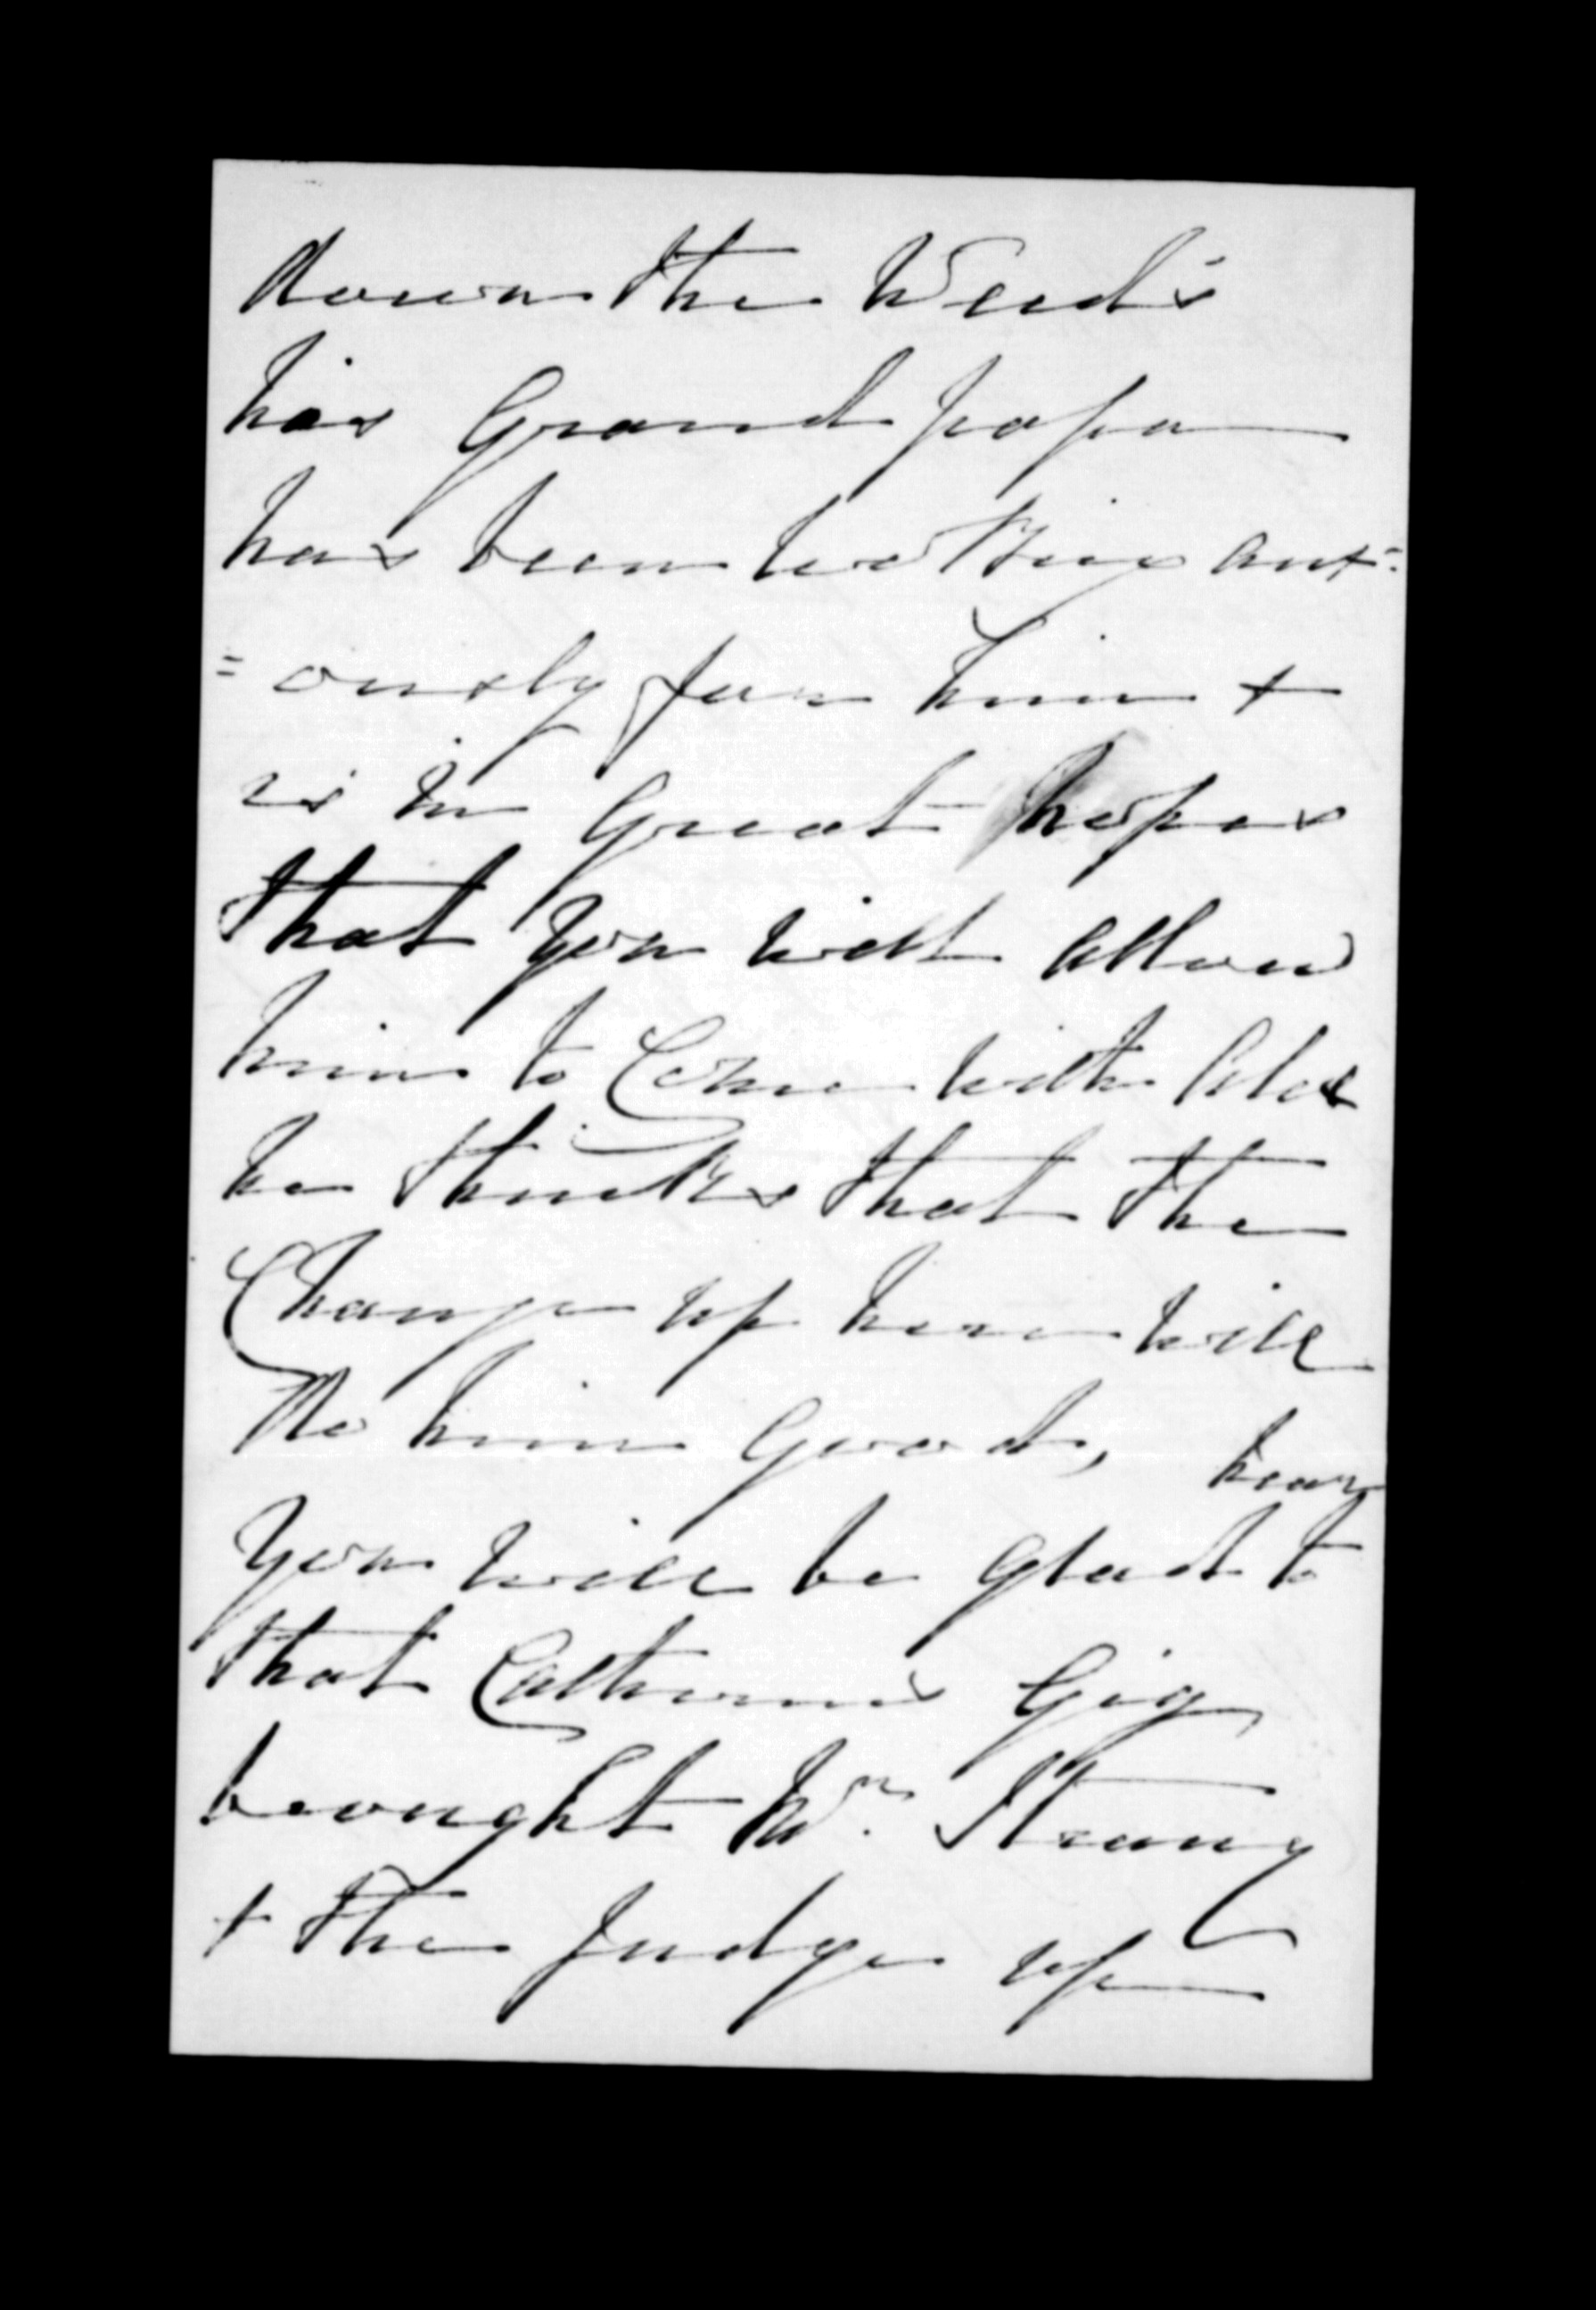 down the Weeds
his Grand papa
has been looking anx=
=ously for him +
is in Great hopes
that you will allow
him to Come with Alex
he thinks that the
Change up here will
do him Good,
hear
you will be glad to
that Catherines Gig
brought Wm. Strang
+ the Judge up